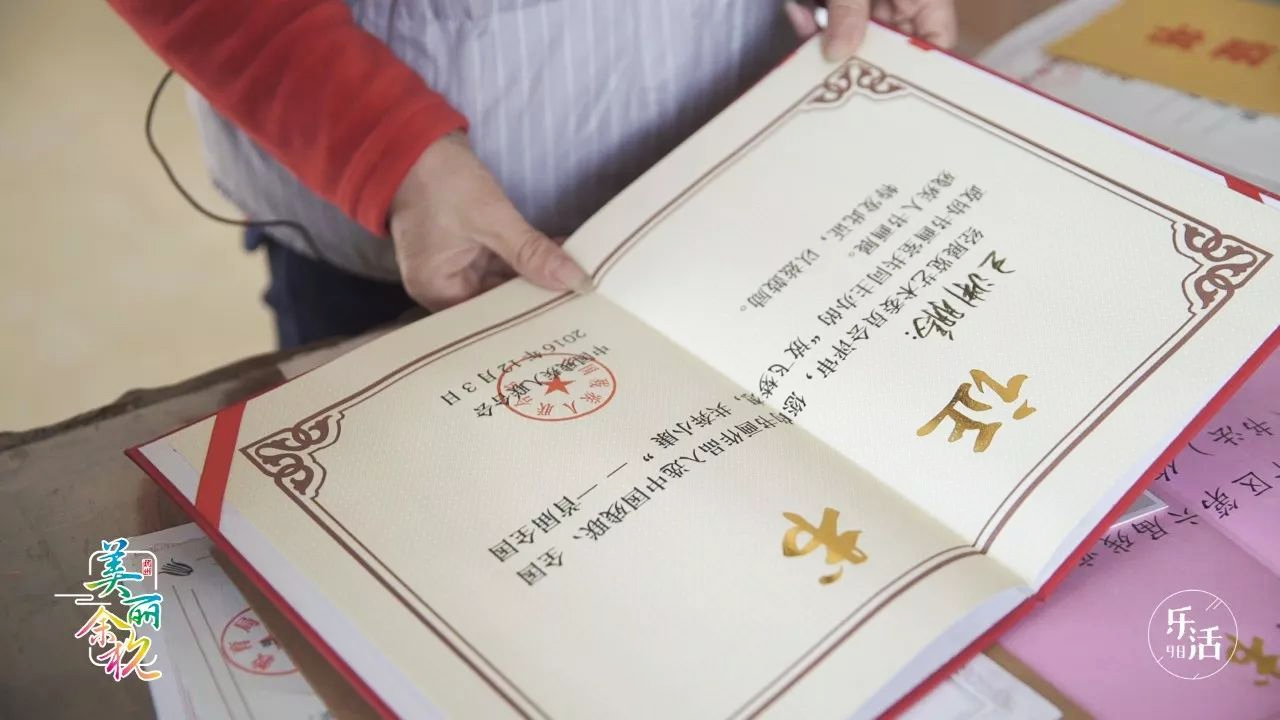 证书
王 鹏：
经展览艺术委员会评审，您的书画作品入选中国残联、全国
政协书画室共同主办的“放飞梦想，共奔小康”——首届全国
残疾人书画展。
特发此证，以资鼓励。
中国残疾人联合会
2016年12月3日
区第六届残
书法）
美丽余杭
杭州
乐活
98